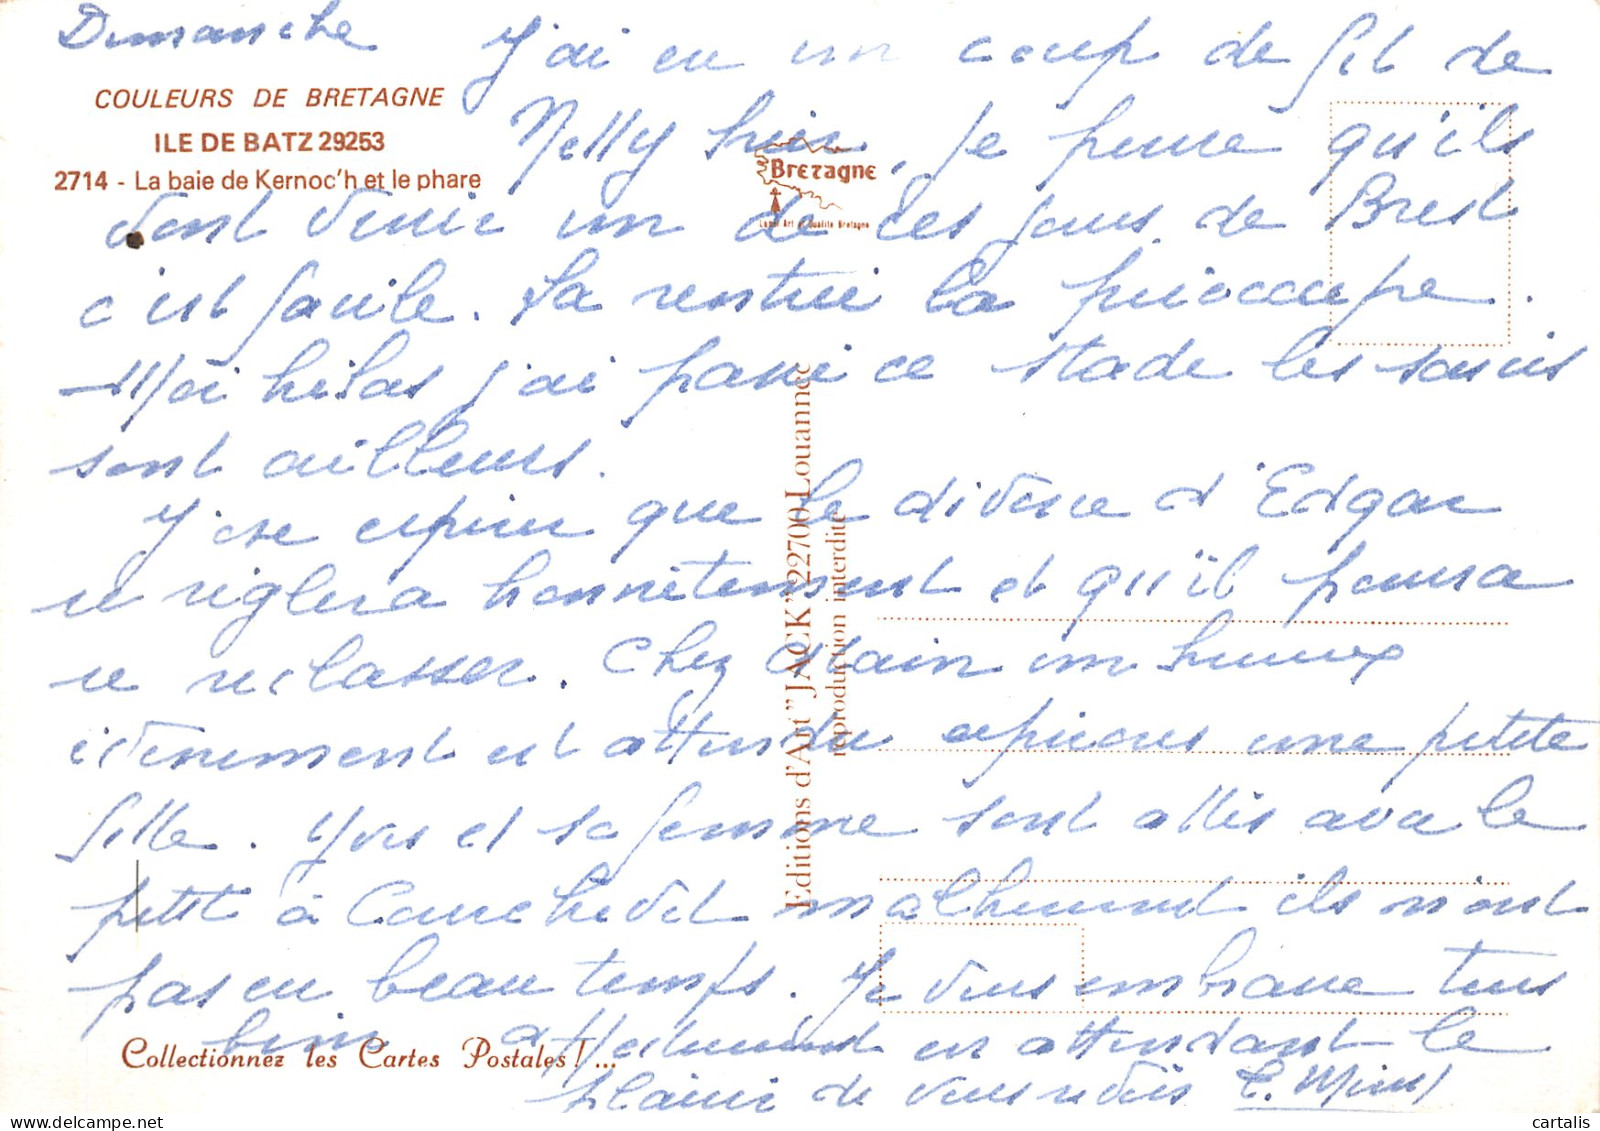 Dimanche J'ai eu un coup de fil de
COULEURS DE BRETAGNE
ILE DE BATZ 29253
2714 - La baie de Kernoc'h et le phare
Nelly hier, je pense qu'ils
Bretagne
Label Art et Qualité Bretagne
vont venir un de ces jours de Brest
c'est facile. Sa rentrée la préoccupe.
Moi hélas j'ai passé ce stade les soucis
sont ailleurs.
J'ose espérer que le divorce d'Edgar
se règlera honnêtement et qu'il pourra
se reclasser. Chez Alain un heureux
évènement est attendu espérons une petite
fille. Yves et sa femme sont allés avec le
petit à malheureusement ils n'ont
pas eu beau temps. Je vous embrasse tous
bien affectueusement en attendant le
plaisir de vous revoir
Editions d'Art "JACK" 22700 Louannec
reproduction interdite
Collectionnez les Cartes Postales! ...
cartalis